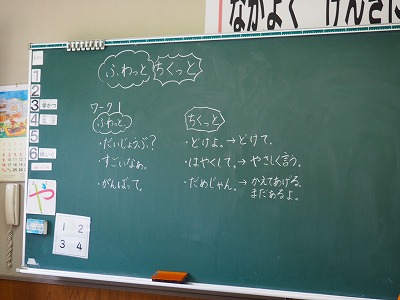 なかよく げんきに
ふわっと ちくっと
ワーク1
ふわっと
・だいじょうぶ?
・すごいなぁ。
・がんばって。
ちくっと
・どけよ。→どけて。
・はやくして。→やさしく言う。
・だめじゃん。→かえてあげる。
まだあるよ。
1
2
3 学かつ
4
5
6
や
1 2
3 4